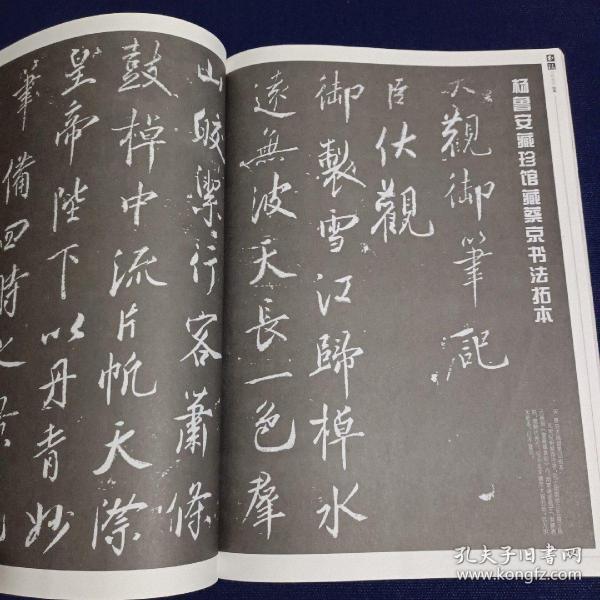 杨鲁安藏珍馆藏蔡京书法拓本
大觀御筆記
臣伏觀
御製雪江歸棹水
遠無波天長一色羣
山皎潔行客蕭條
鼓棹中流片帆天際
皇帝陛下以丹青妙
筆備四時之景
孔夫子旧书网
www.kongfz.com